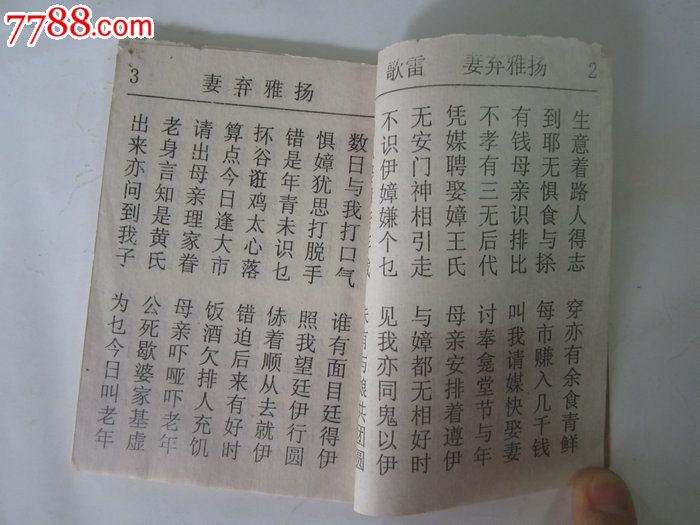 7788.com
2
扬雅弃妻 雷歌
生意着路人得志 穿亦有余食青鲜
到耶无惧食与 每市赚入几千钱
有钱母亲识排比 叫我请媒快娶妻
不孝有三无后代 讨奉龛堂节与年
凭媒聘娶嫜王氏 母亲安排着遵伊
无安门神相引走 与嫜都无相好时
不识伊嫜嫌个乜 见我亦同鬼以伊
有与娘共团圆
扬雅弃妻
3
数日与我打口气 谁有面目廷得伊
惧嫜犹思打脱手 照我望廷伊行圆
错是年青未识乜 着顺从去就伊
抔谷诳鸡太心落 错迫后来有好时
算点今日逢大市 饭酒欠排人充饥
请出母亲理家眷 母亲吓哑吓老年
老身言知是黄氏 公死歇婆家基虚
出来亦问到我子 为乜今日叫老年